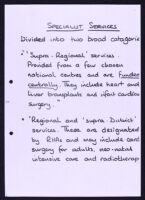 SPECIALIST SERVICES
Divided into two broad categorie
"Supra-Regional" services
Provided from a few chosen
national centres and are funded
centrally. They include heart and
liver transplants and infant cardiac
surgery."
"Regional and 'supra-District'
services. These are designated
by RHAs and may include card
surgery for adults, neo-natal
intensive care and radiotherap